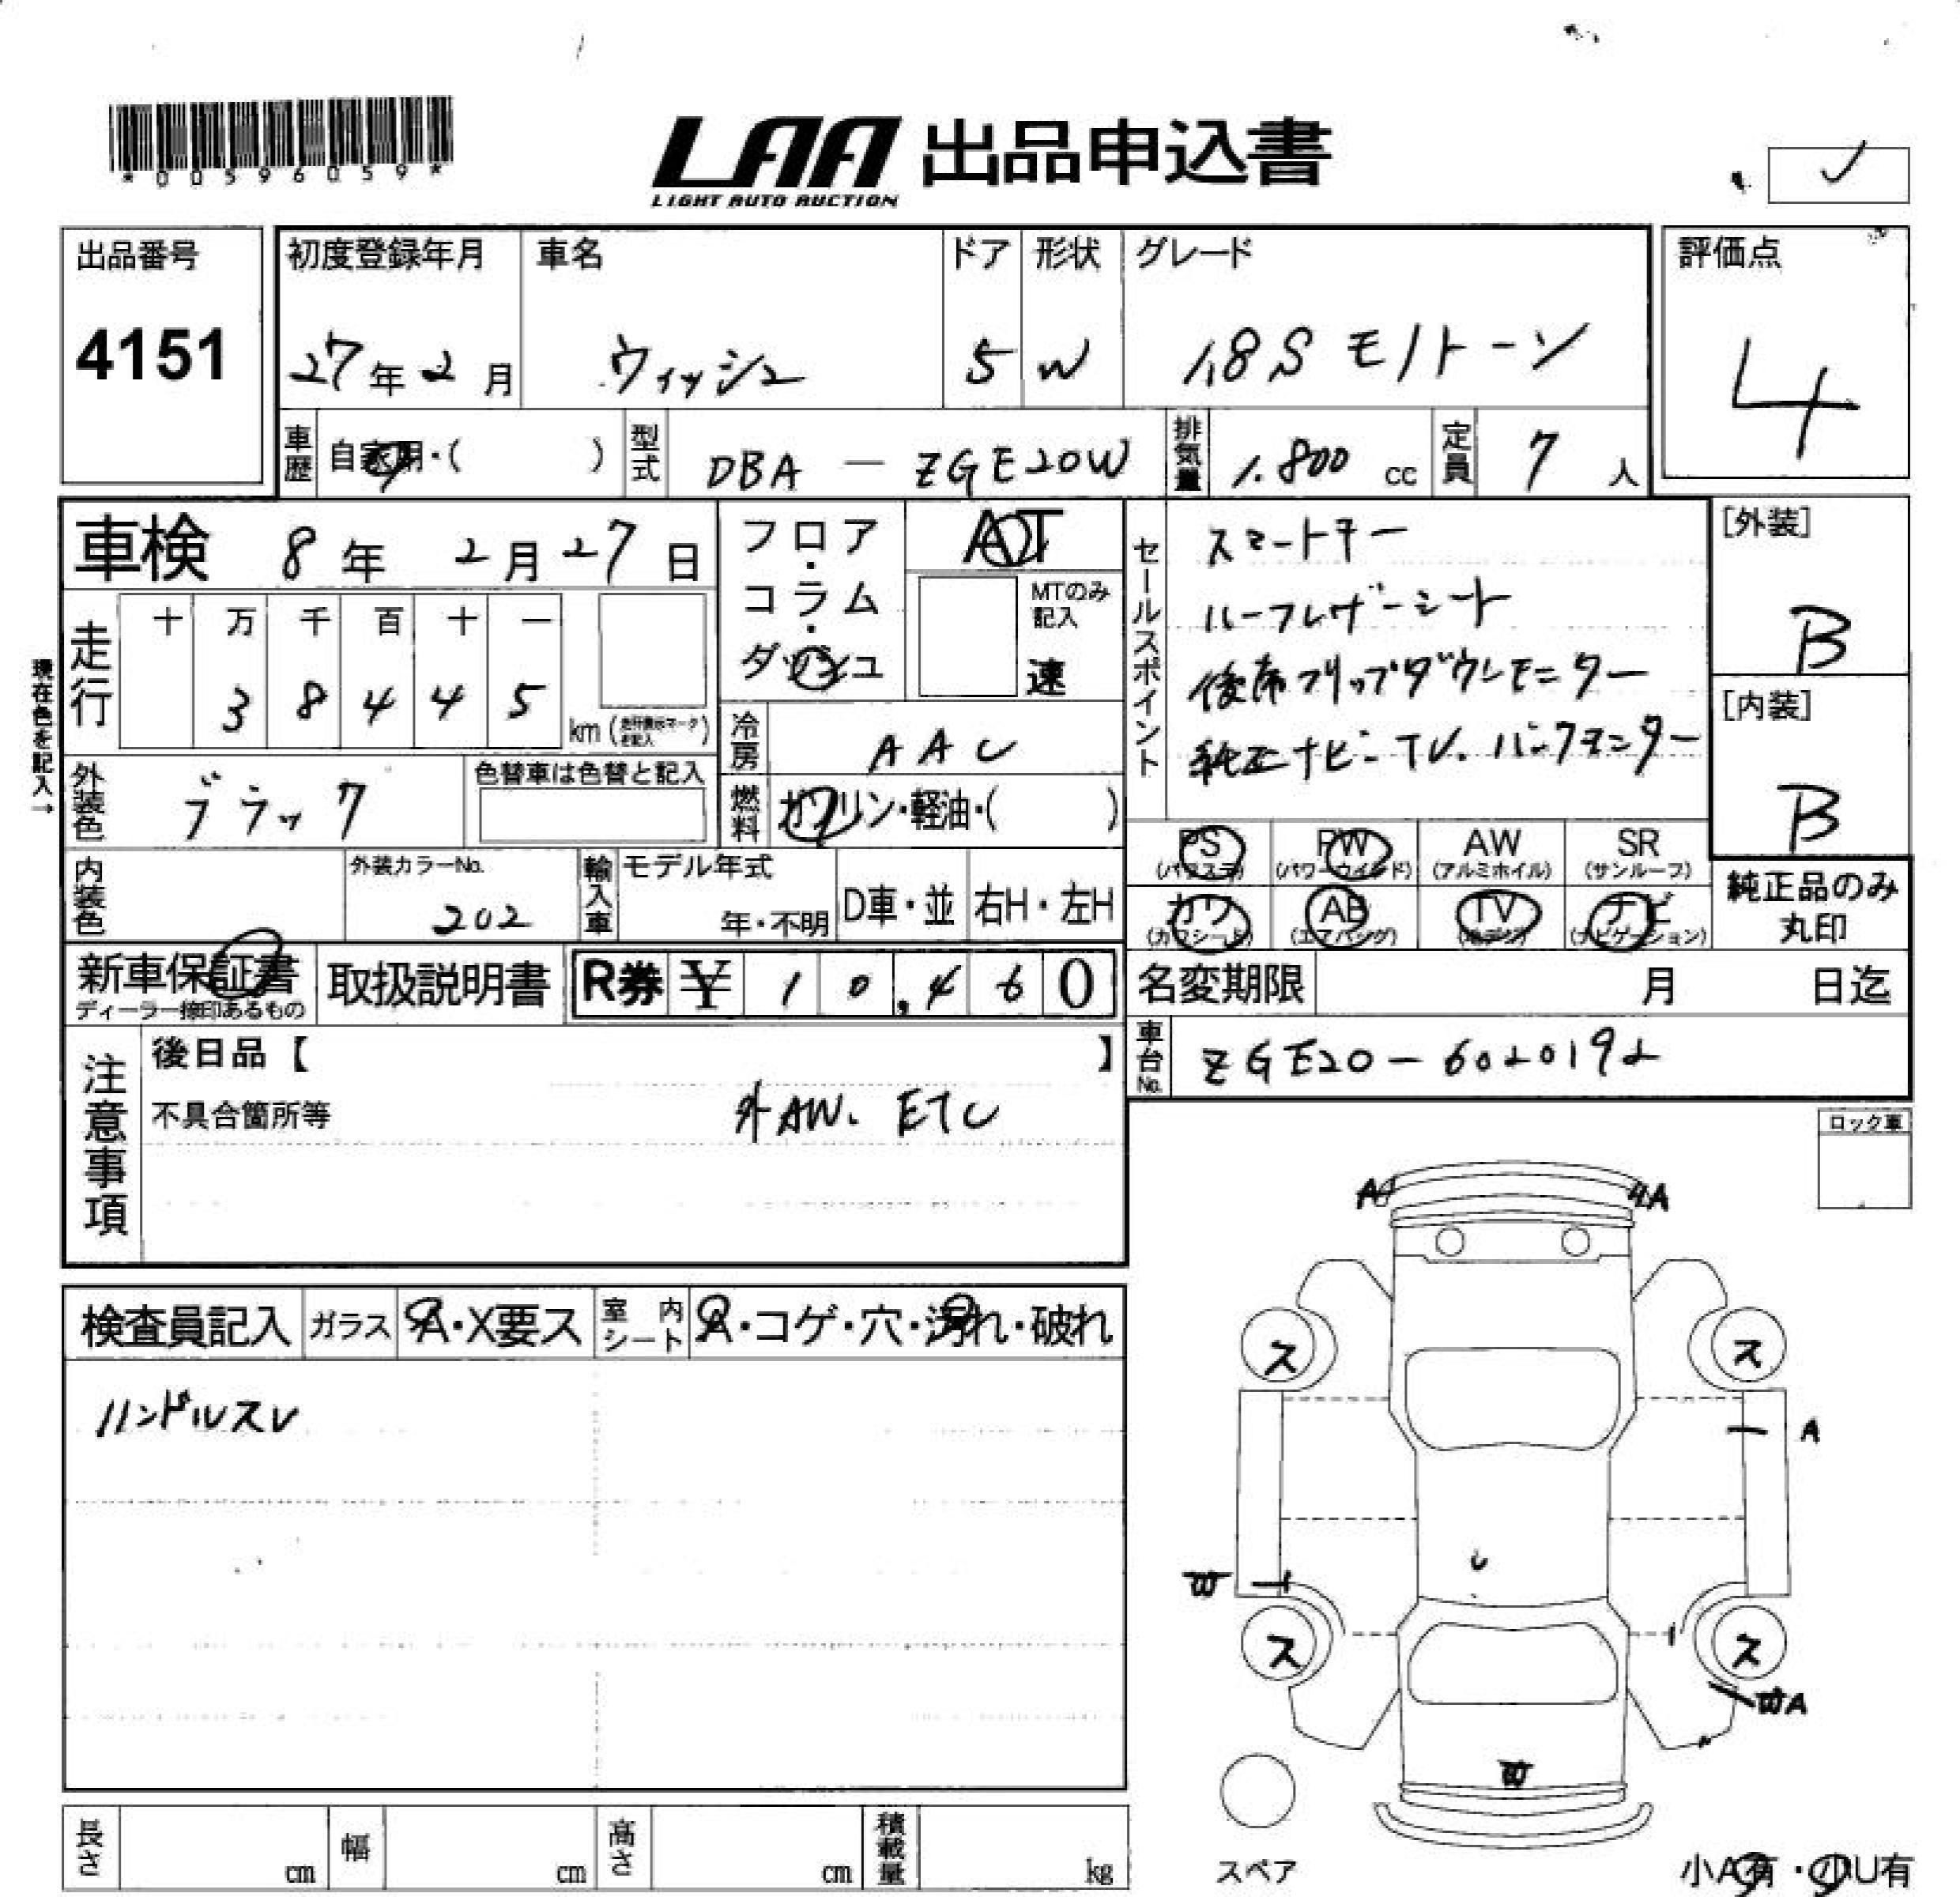 *00596059*
LAA 出品申込書
LIGHT AUTO AUCTION
✓
出品番号
4151
初度登録年月
27年2月
車名
ウィッシュ
ドア
5
形状
W
グレード
1.8S モノトーン
評価点
4
車歴
自家用・( )
型式
DBA — ZGE20W
排気量
1.800 cc
定員
7 人
車検 8年 2月27日
フロア・コラム・ダッシュ
AT
MTのみ
記入
速
セールスポイント
スマートキー
ハーフレザーシート
後席フリップダウンモニター
純正ナビ-TV. バックモニター
[外装]
B
[内装]
B
現在色を記入→
走行
十 万 千 百 十 一
3 8 4 4 5
km (走行表示マークを記入)
冷房
AAC
燃料
ガソリン・軽油・( )
外装色
ブラック
色替車は色替と記入
内装色
外装カラーNo.
202
輸入車
モデル年式
年・不明
D車・並
右H・左H
PS
(パワステ)
PW
(パワーウインド)
AW
(アルミホイル)
SR
(サンルーフ)
カワ
(カワシート)
AB
(エアバッグ)
TV
(地デジ)
ナビ
(ナビゲーション)
純正品のみ
丸印
新車保証書
ディーラー捺印あるもの
取扱説明書
R券 ¥ 10,460
名変期限 月 日迄
車台No.
ZGE20-6020192
注意事項
後日品【 】
不具合箇所等
外AW. ETC
ロック車
検査員記入
ガラス
A・X要ス
室内シート
A・コゲ・穴・汚れ・破れ
ハンドルスレ
A
A
ス
ス
A
W
ス
ス
WA
W
スペア
小A有・小U有
長さ cm
幅 cm
高さ cm
積載量 kg